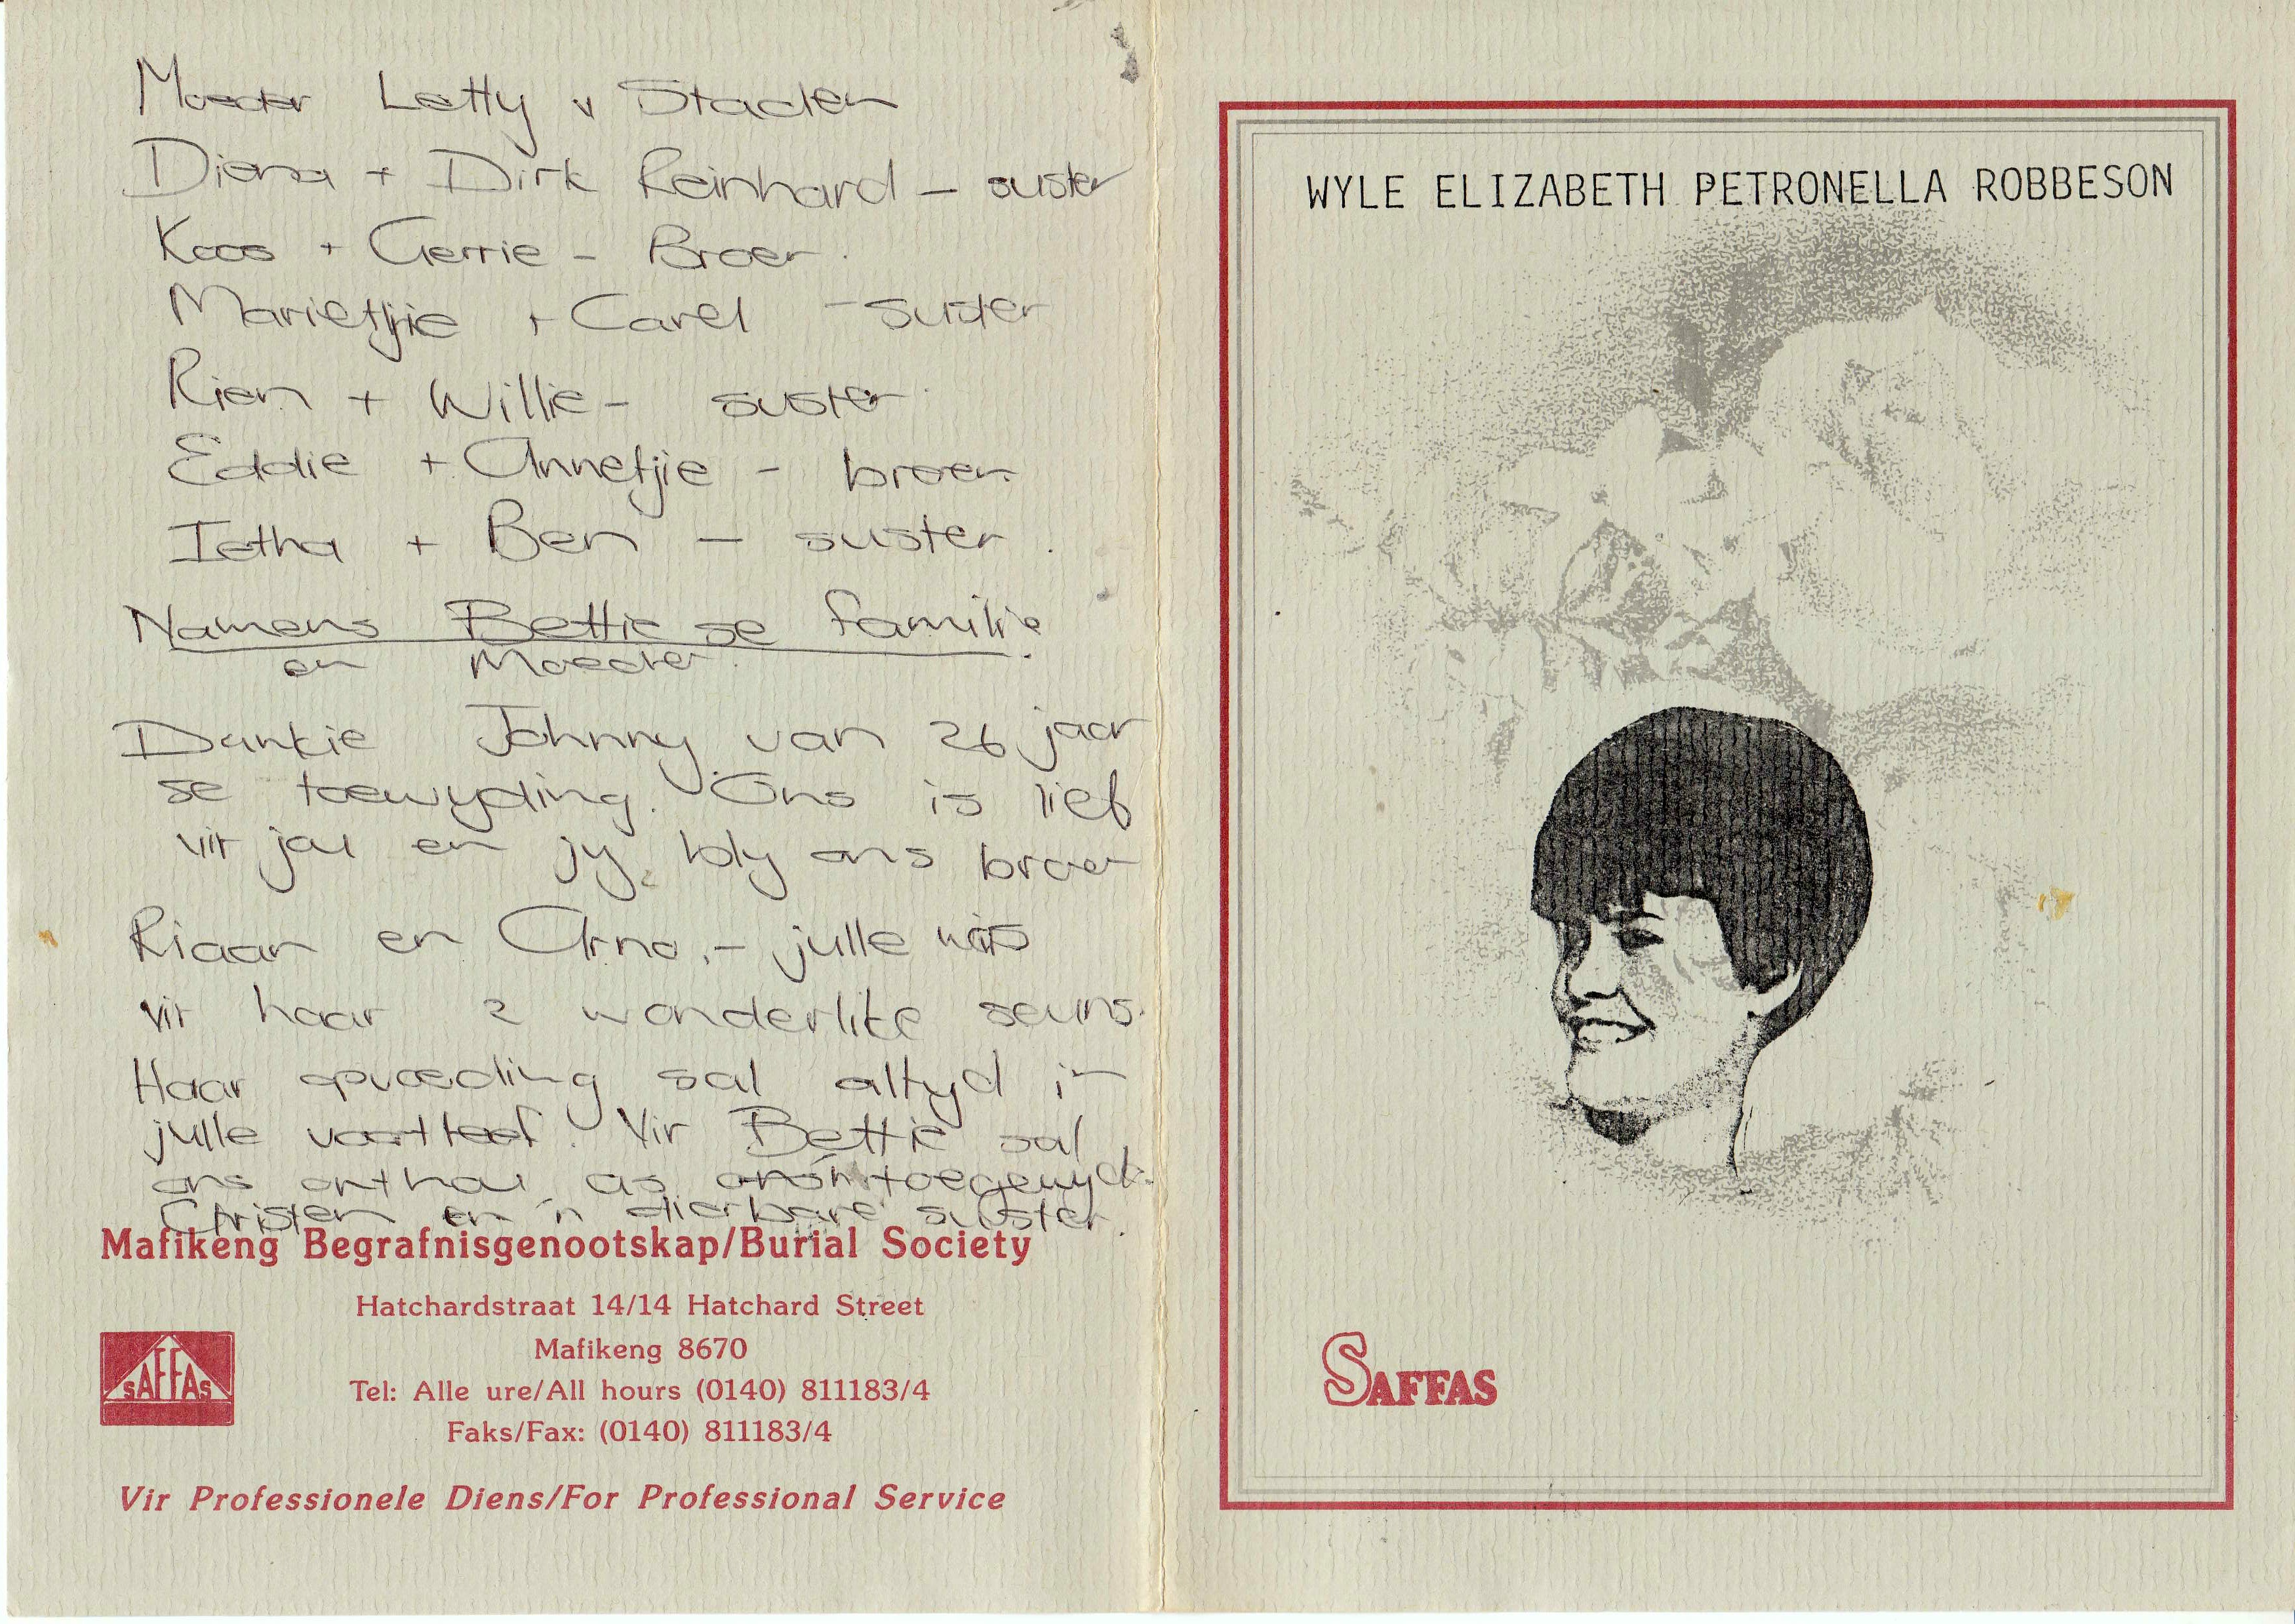 Moeder Letty v Staden
Diena + Dirk Reinhard - suster
Koos + Gerrie - Broer.
Marietjie + Carel - suster
Rien + Willie - suster
Eddie + Annetjie - broer
Ietha + Ben - suster.
Namens Bettie se familie
en Moeder.
Dankie Johnny van 26 jaar
se toewyding. Ons is lief
vir jou en jy bly ons broer
Riaan en Arno. - julle was
vir haar 2 wonderlike seuns.
Haar opvoeding sal altyd in
julle voortleef. Vir Bettie sal
ons onthou as toegewyde
Christen en 'n dierbare suster.
Mafikeng Begrafnisgenootskap/Burial Society
Hatchardstraat 14/14 Hatchard Street
Mafikeng 8670
Tel: Alle ure/All hours (0140) 811183/4
Faks/Fax: (0140) 811183/4
SAFFAS
Vir Professionele Diens/For Professional Service
WYLE ELIZABETH PETRONELLA ROBBESON
SAFFAS